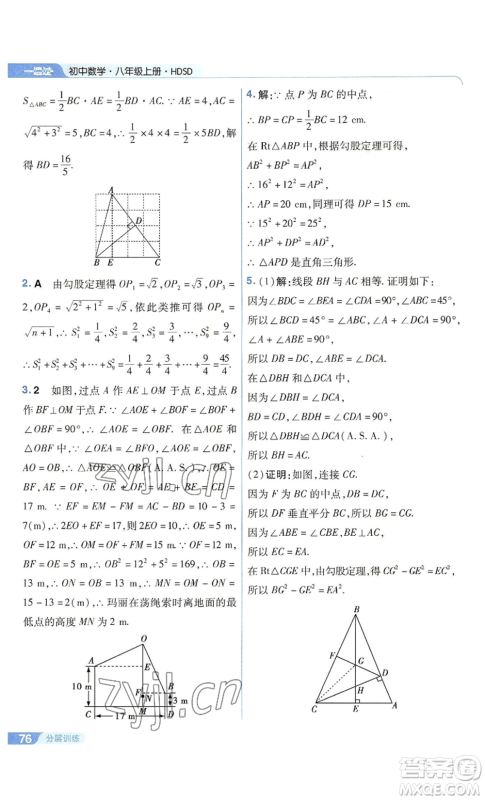 一遍过 初中数学·八年级上册·HDSD
S△ABC=1/2 BC·AE=1/2 BD·AC. ∵AE=4,AC=
√(4²+3²)=5,BC=4,∴1/2×4×4=1/2×5BD,解
得BD=16/5.
A
D
B E C
2. A 由勾股定理得OP₁=√2,OP₂=√3,OP₃=
2,OP₄=√(2²+1²)=√5,依此类推可得OPₙ=
√(n+1),∴S₁²=1/4,S₂²=2/4,S₃²=3/4,…,S₉²=9/4,
∴S₁²+S₂²+S₃²+…+S₉²=1/4+2/4+3/4+…+9/4=45/4.
3. 2 如图,过点A作AE⊥OM于点E,过点B
作BF⊥OM于点F. ∵∠AOE+∠BOF=∠BOF+
∠OBF=90°,∴∠AOE=∠OBF. 在△AOE和
△OBF中,∠OEA=∠BFO,∠AOE=∠OBF,
AO=OB,∴△AOE≌△OBF(A.A.S.),
∴OE=BF,AE=OF,∴OE+OF=AE+BF=CD=
17 m. ∵EF=EM-FM=AC-BD=10-3=
7(m),∴2EO+EF=17,则2EO=10,∴OE=
5 m,OF=12 m,∴OB²=5²+12²=169,∴OB=
13 m,∴OM=OF+FM=15 m. ∵ON=OB=
13 m,∴MN=OM-ON=OM-OB=
15-13=2(m),∴玛丽在荡绳索时离地面的最
低点的高度MN为2 m.
O
A E
10 m F B
N 3 m
C 17 m M D
76 分层训练
4. 解:∵点P为BC的中点,
∴BP=CP=1/2 BC=12 cm.
在Rt△ABP中,根据勾股定理可得,
AB²+BP²=AP²,
∴16²+12²=AP²,
∴AP=20 cm,同理可得DP=15 cm.
∵15²+20²=25²,
∴AP²+DP²=AD²,
∴△APD是直角三角形.
5. (1)解:线段BH与AC相等. 证明如下:
因为∠BDC=∠BEC=∠CDA=90°,∠ABC=45°,
所以∠BCD=45°=∠ABC,∠A+∠DCA=90°,
∠A+∠ABE=90°,
所以DB=DC,∠ABE=∠DCA.
在△DBH和△DCA中,
因为∠DBH=∠DCA,
BD=CD,
∠BDH=∠CDA,
所以△DBH≌△DCA(A.S.A.),
所以BH=AC.
(2)证明:如图,连接CG.
因为F为BC的中点,DB=DC,
所以DF垂直平分BC,
所以BG=CG.
因为∠ABE=∠CBE,BE⊥AC,
所以EC=EA.
在Rt△CGE中,由勾股定理可得CG²-GE²=CE²,
所以BG²-GE²=EA².
B
F
G
D
H
C E A
zyjl.cn
作业精灵